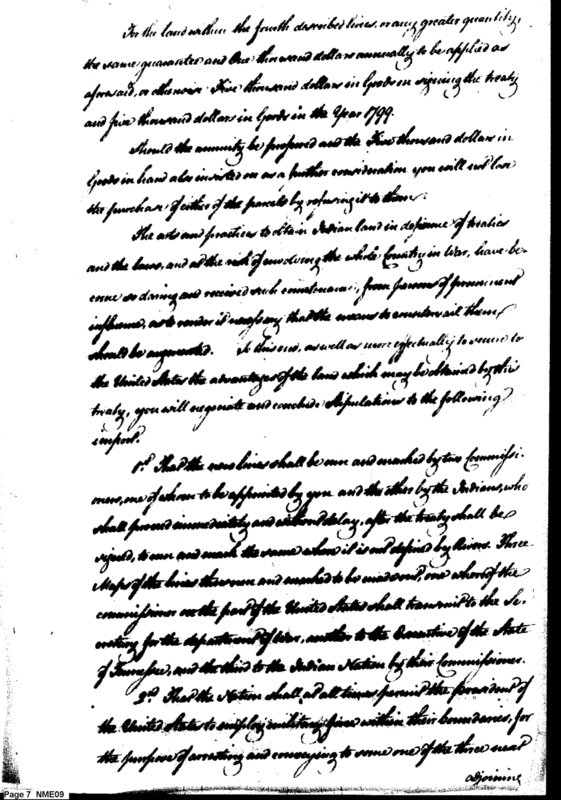 For the land within the fourth described lines, or any greater quantity,
the same guarantee and One thousand dollars annually to be applied as
aforesaid, or otherwise Five thousand dollars in Goods on signing the treaty
and five thousand dollars in Goods in the Year 1799.
Should the annuity be proposed and the Five thousand dollars in
Goods in hand also insisted on as a further consideration you will not lose
the purchase of either of the parcels by refusing it to them.
The acts and practices to obtain Indian land in defiance of treaties
and the laws, and at the risk of involving the whole Country in War, have be-
come so daring and received such countenance, from persons of prominent
influence, as to render it necessary that the means to countervail them
should be augmented. To this end, as well as more effectually to secure to
the United States the advantages of the land which may be obtained by this
treaty, you will negotiate and conclude stipulations to the following
import.
1st That the new lines shall be run and marked by two Commissi-
oners, one of whom to be appointed by you and the other by the Indians, who
shall proceed immediately and without delay, after the treaty shall be
signed, to run and mark the same where it is not defined by Rivers. Three
Maps of the lines thus run and marked to be made out, one whereof the
commissioner on the part of the United States shall transmit to the Se-
cretary for the department of War, another to the Executive of the State
of Tennessee, and the third to the Indian Nation by their Commissioner.
2d That the Nation shall at all times permit the President of
the United States to employ military force within their boundaries, for
the purpose of arresting and conveying to some one of the three next
adjoining
Page 7 NME09